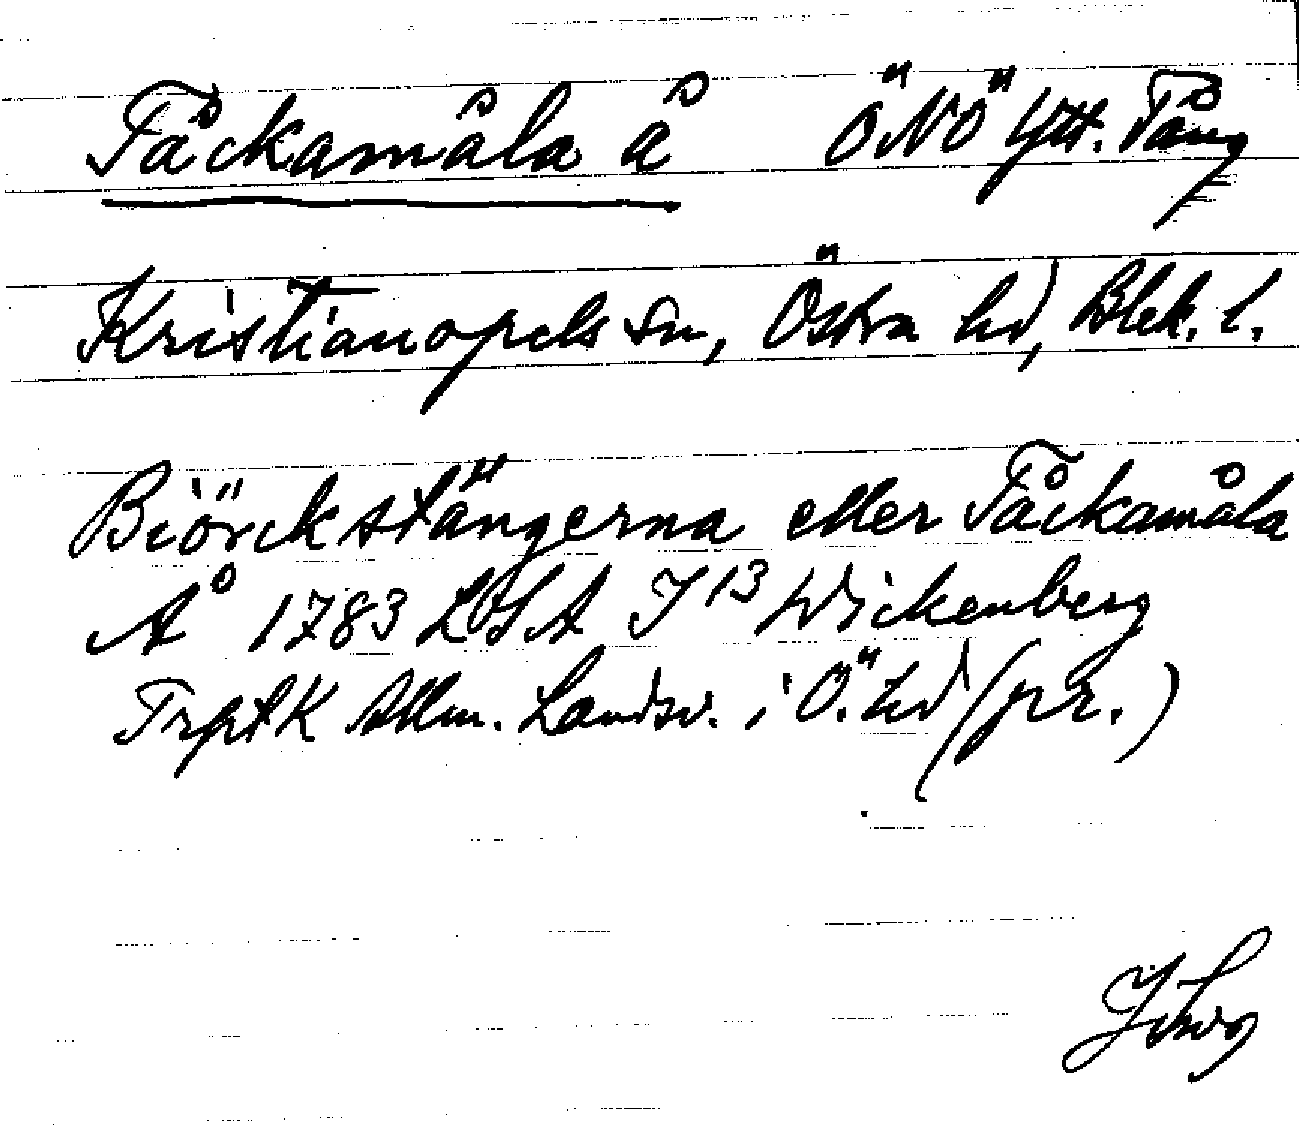 Tåckamåla å ÖNÖ Ytt. Tång
Kristianopels sn, Östra hd, Blek. l.
Biörckstängerna eller Tåckamåla
Å 1783 LSA I 13 Wickenberg
TrptK Allm. Landsv. i Ö. hd (pr.)